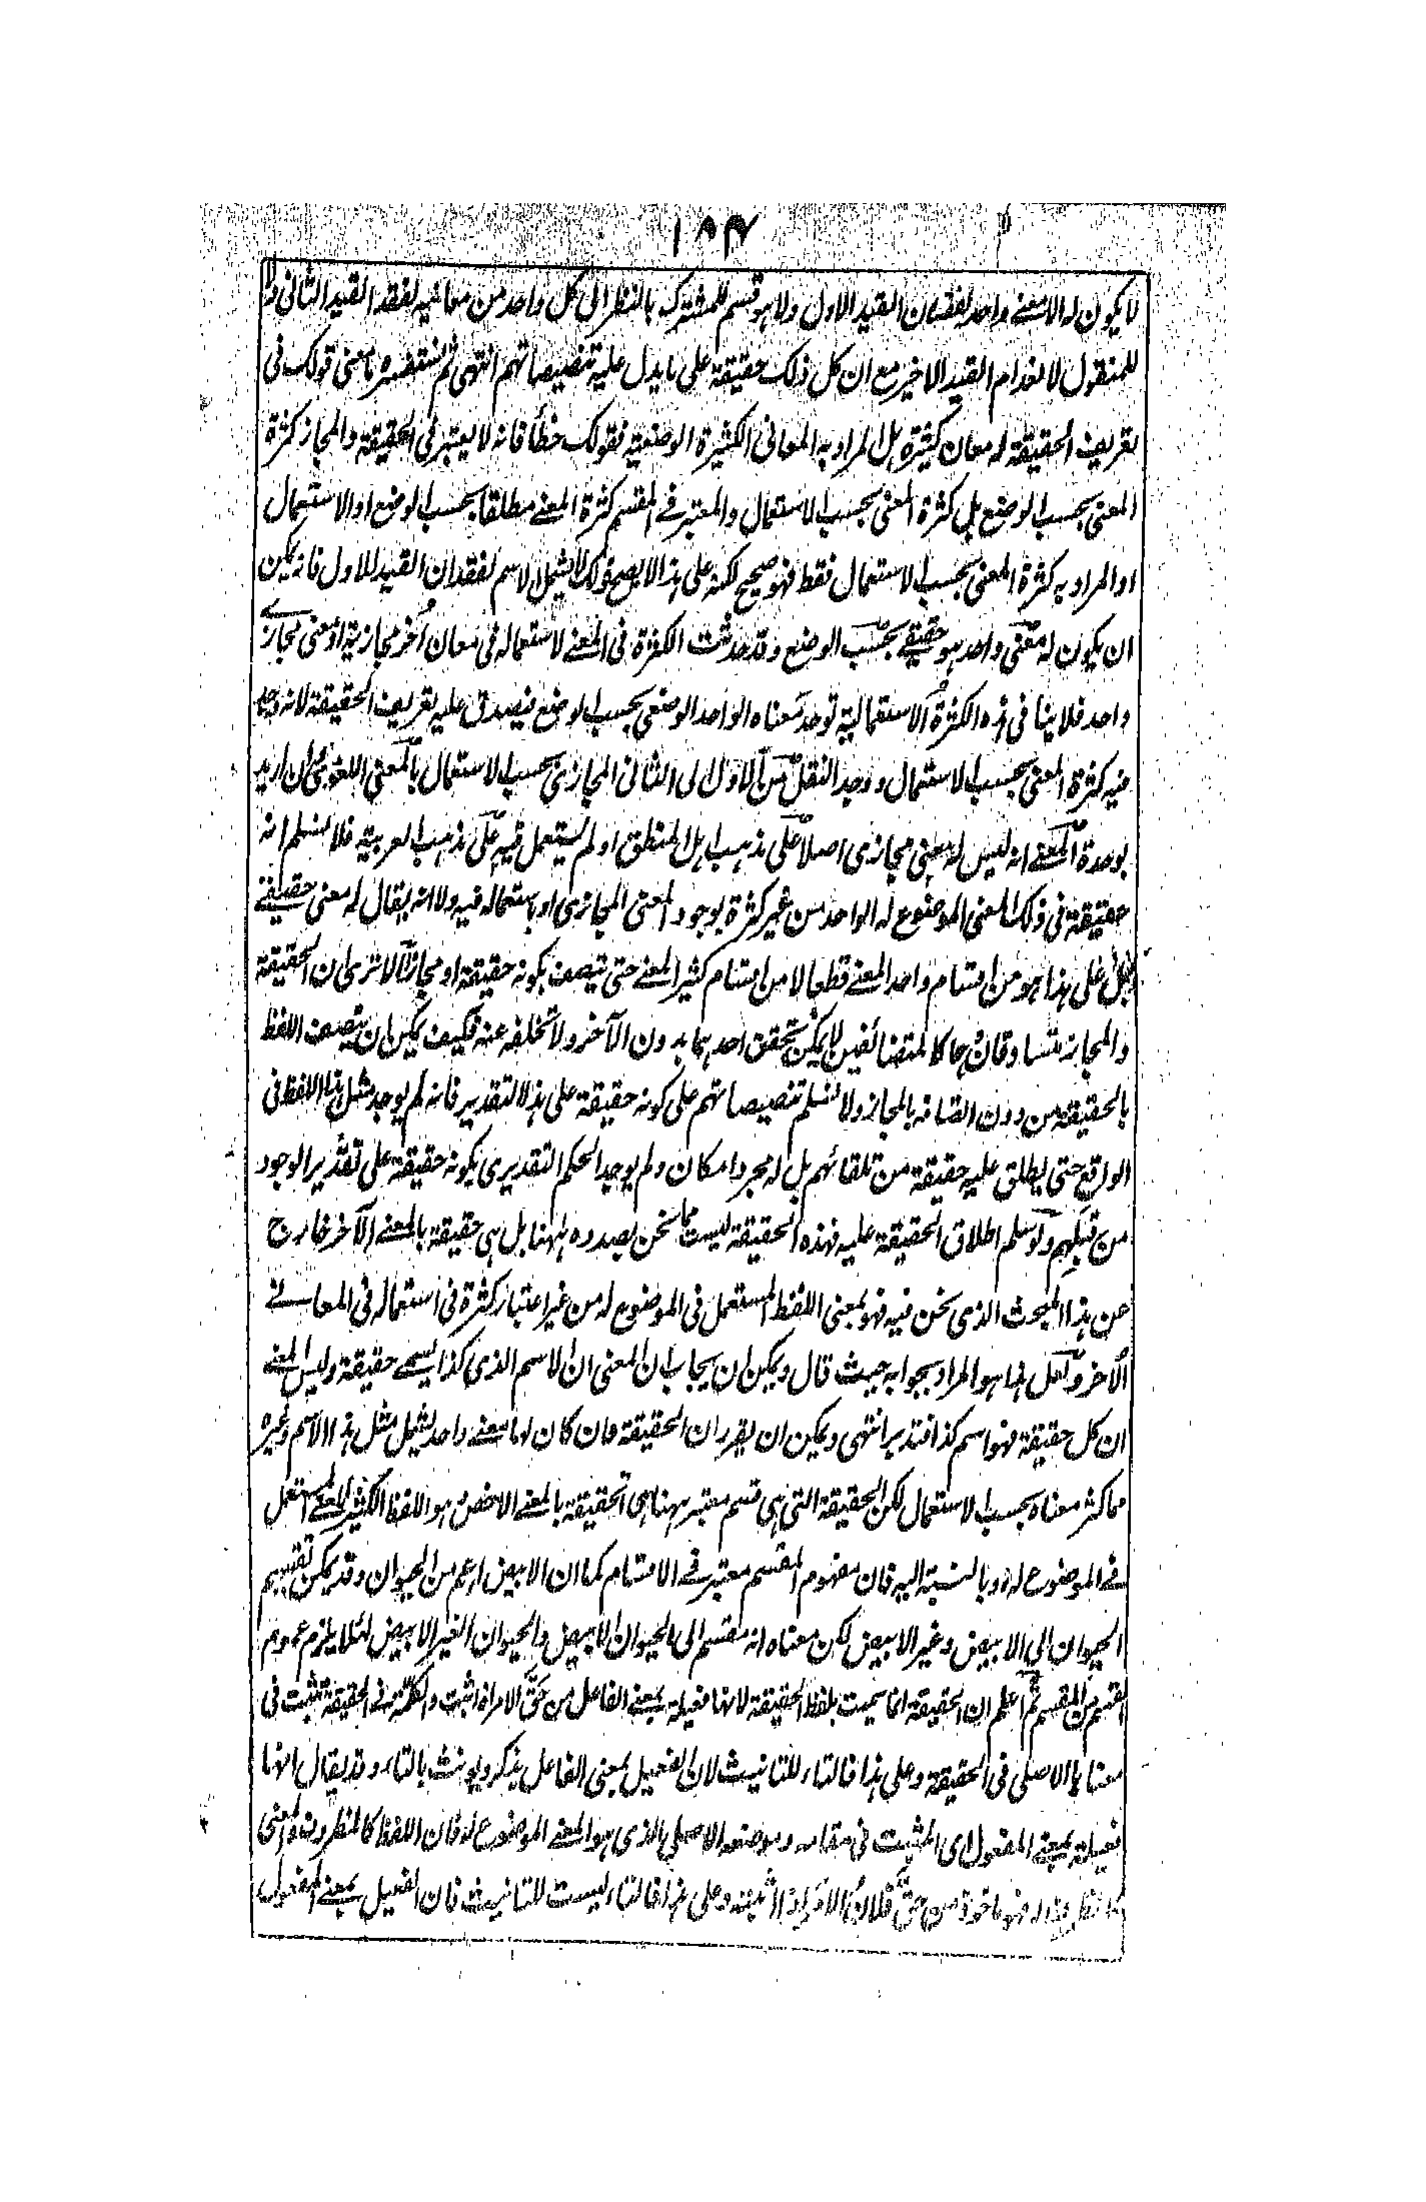 ١٨٣
لا يكون له الا معنے واحد لفقدان القيد الاول ولا هو قسم للمشترك بالنظر الى كل واحد من معانيه لفقد القيد الثانى ولا
للمنقول لانعدام القيد الاخير مع ان كل ذلك حقيقة على ما يدل عليه تنصيصاتهم انتهى ثم نستفسره ما معنى قولك فى
تعريف الحقيقة له معان كثيرة هل المراد به المعانى الكثيرة الوضعية فقولك خطأ فانه لا يعتبر فى الحقيقة والمجاز كثرة
المعنى بحسب الوضع بل كثرة المعنى بحسب الاستعمال والمعتبر فے المقسم كثرة المعنے مطلقا بحسب الوضع او الاستعمال
او المراد به كثرة المعنى بحسب الاستعمال فقط فهو صحيح لكنه على هذا لا يصح قولك لا يشمل لاسم لفقدان القيد الاول فانه يمكن
ان يكون له معنى واحد هو حقيقے بحسب الوضع وقد حدثت الكثرة فى المعنے لاستعماله فى معان أخر مجازية او معنى مجازے
واحد فلا ينافى هذه الكثرة الاستعمالية توحد معناه الواحد الوضعى بحسب الوضع فيصدق عليه تعريف الحقيقة لانه وجد
فيه كثرة المعنى بحسب الاستعمال ووجد النقل من الاول الى الثانى المجازى بحسب الاستعمال بالمعنى اللغوى وان اريد
بوحدة المعنے انه ليس له معنى مجازى اصلا على مذهب اهل المنطق او لم يستعمل فيه على مذهب العربية فلا نسلم انه
حقيقة فى ذلك المعنى الموضوع له الواحد من غير كثرة بوجود المعنى المجازى او باستعماله فيه ولا انه يقال له معنى حقيقے
بل على هذا هو من اقسام واحد المعنے قطعا لا من اقسام كثير المعنے حتى يتصف بكونه حقيقة او مجازا الا ترى ان الحقيقة
والمجاز متساوقان هما كالمتضائفين لا يمكن تحقق احدهما بدون الآخر ولا تخلفه عنه فكيف يمكن ان يتصف اللفظ
بالحقيقة من دون اتصافه بالمجاز ولا نسلم تنصيصاتهم على كونه حقيقة على هذا التقدير فانه لم يوجد مثل هذا اللفظ فى
الواقع حتى يطلق عليه حقيقة من تلقائهم بل له مجرد امكان ولم يوجد الحكم التقديرى بكونه حقيقة على تقدير الوجود
من قبلهم ولو سلم اطلاق الحقيقة عليه فهذه الحقيقة ليست مما نحن بصدده ههنا بل هى حقيقة بالمعنے الآخر خارج
عن هذا المبحث الذى نحن فيه فهو بمعنى اللفظ المستعمل فى الموضوع له من غير اعتبار كثرة فى استعماله فى المعانے
الأخر ولعل هذا هو المراد بجوابه حيث قال ويمكن ان يجاب ان المعنى ان الاسم الذى كذا يسمے حقيقة وليس المعنے
ان كل حقيقة فهو اسم كذا فتدبر انتهى ويمكن ان يقرر ان الحقيقة وان كان لها معنے واحد يشمل مثل هذا الاسم وغيره
مما كثر معناه بحسب الاستعمال لكن الحقيقة التى هى قسم معتبر ههنا هى الحقيقة بالمعنے الاخص هو اللفظ الكثير المعنے المستعمل
فے الموضوع له او بالنسبة اليه فان مفهوم المقسم معتبر فے الاقسام كما ان الابيض اعم من الحيوان وقد يمكن تقسيم
الحيوان الى الابيض وغير الابيض لكن معناه انه مقسم الى الحيوان الابيض والحيوان الغير الابيض لئلا يلزم عموم
القسم من المقسم ثم اعلم ان الحقيقة انما سميت بلفظ الحقيقة لانها فعيلة بمعنے الفاعل من حق الامر اذا ثبت والكلمة فے الحقيقة تثبت فى
معناها الاصلى فى الحقيقة وعلى هذا فالتاء للتانيث لان الفعيل بمعنى الفاعل يذكر ويونث بالتاء وقد يقال انها
فعيلة بمعنے المفعول اى المثبت فى مقامه وموضعه الاصلى الذى هو المعنے الموضوع له فان اللفظ كالمظروف والمعنى
كالظرف له فهو ماخوذ من حق فلان الامر اذا اثبته وعلى هذا فالتاء ليست للتانيث فان الفعيل بمعنے المفعول